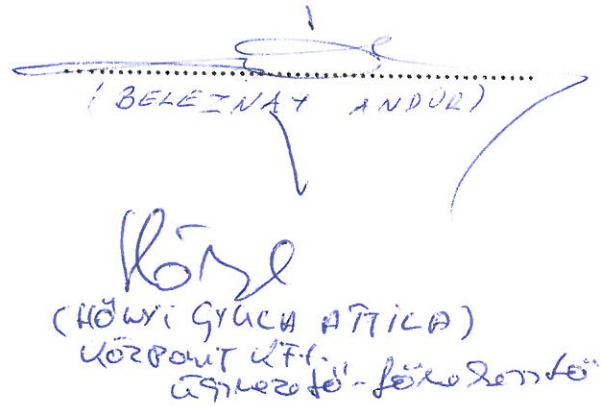 (BELEZNAY ANDOR)
(HŐNYI GYULA ATTILA)
KÖZPONT KFT.
ügyvezető - főszerkesztő